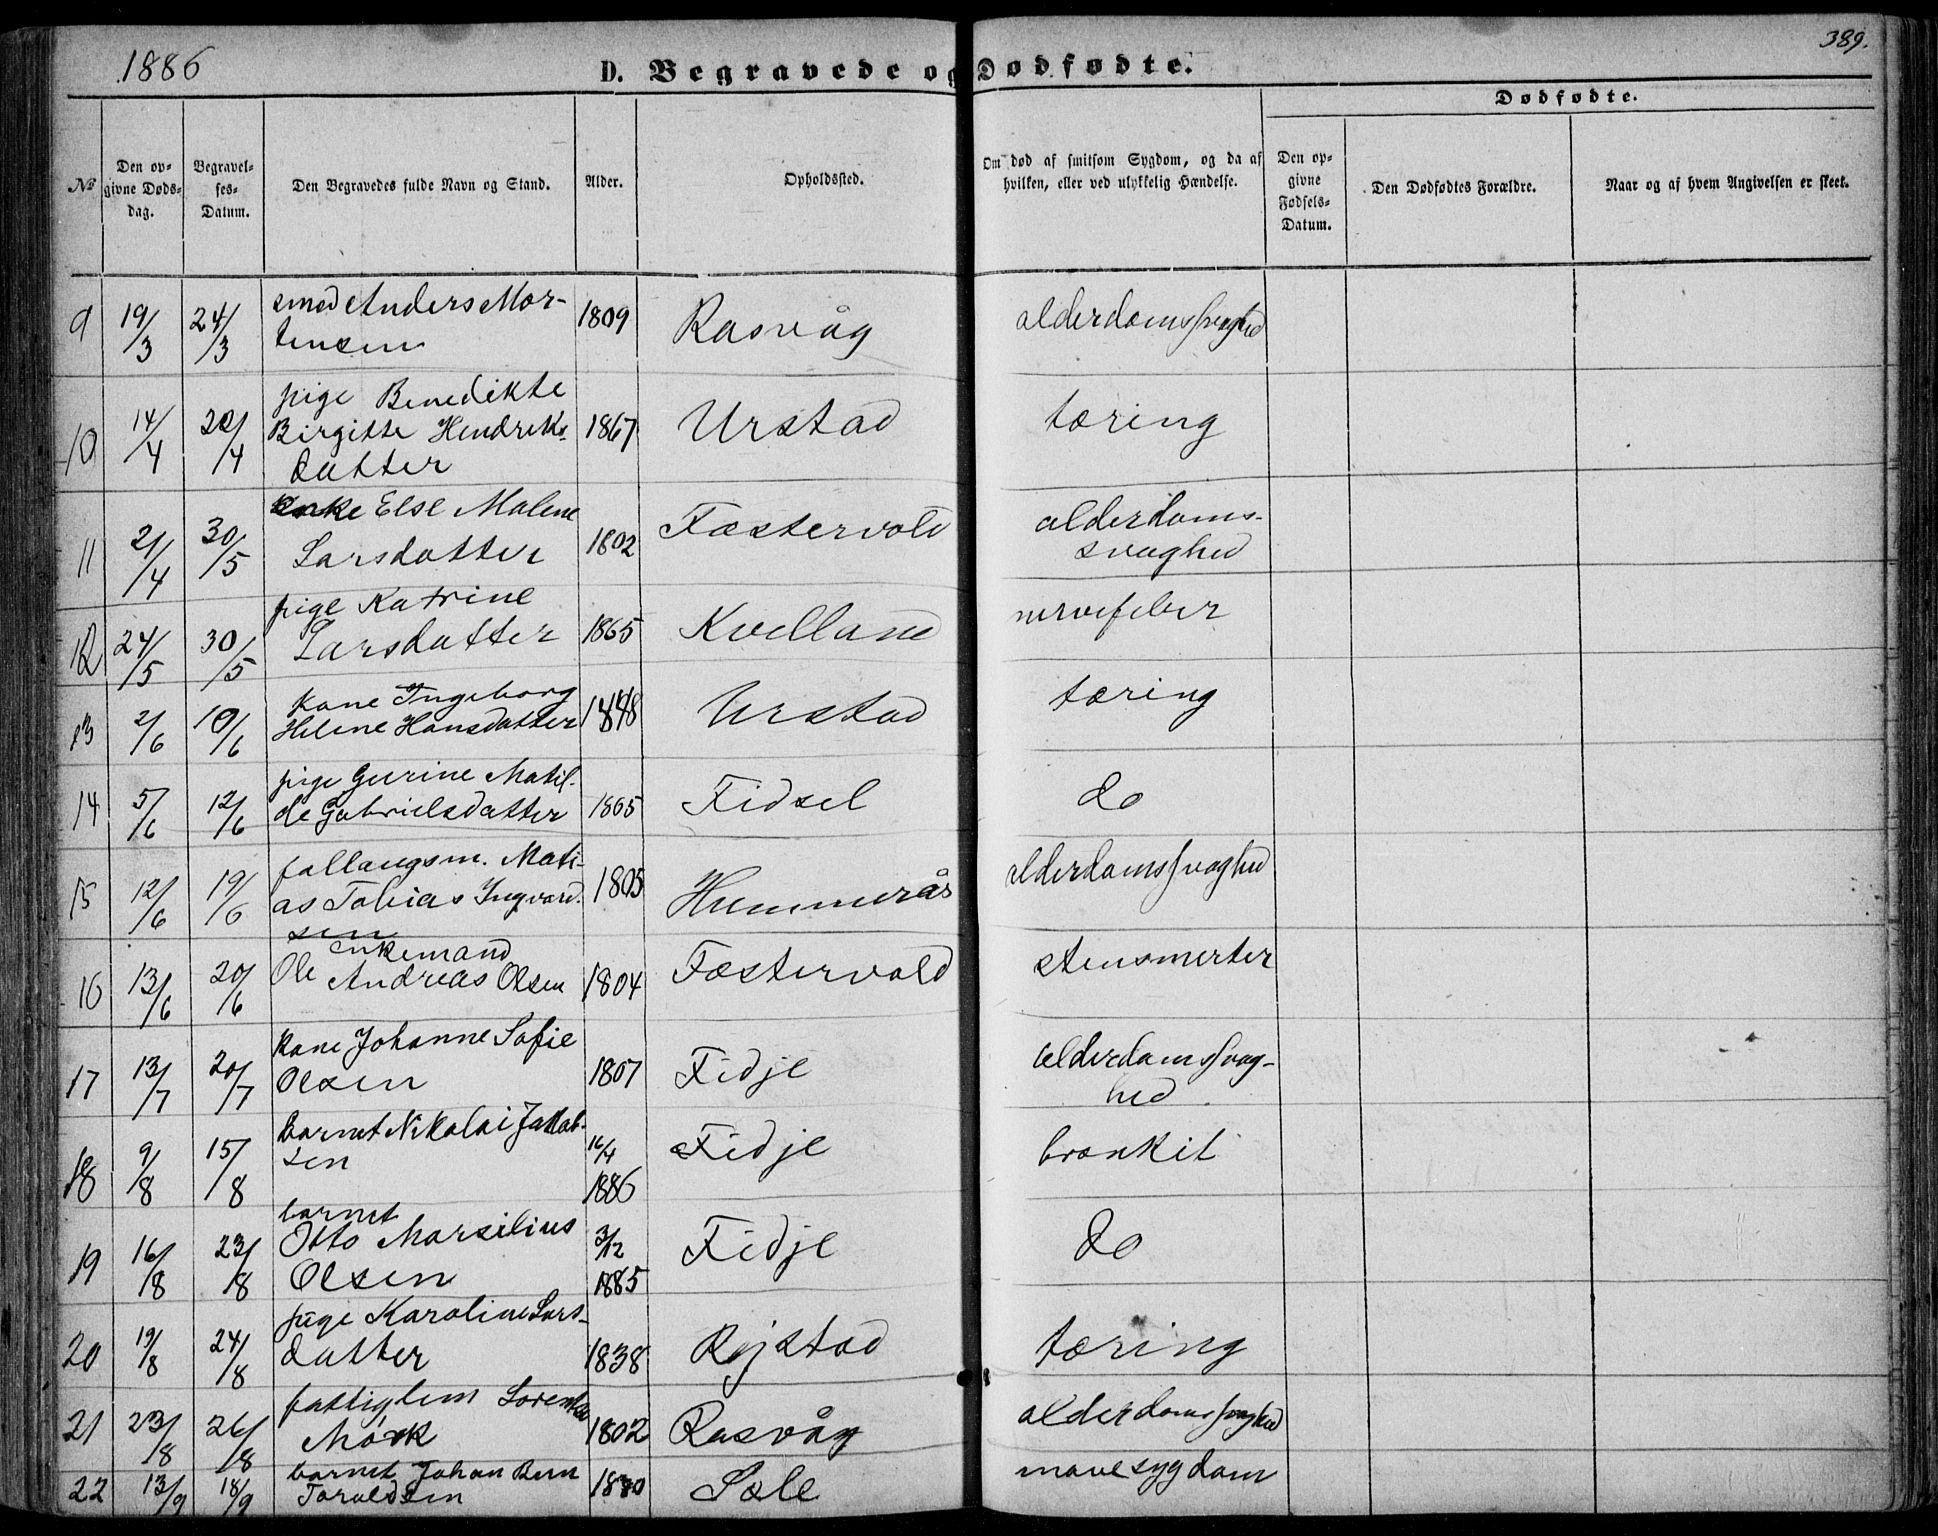 1886
389.
D. Begravede og Dødfødte.
Dødfødte.
№
Den opgivne Dødsdag.
Begravelses-Datum.
Den Begravedes fulde Navn og Stand.
Alder.
Opholdssted.
Om død af smitsom Sygdom, og da af hvilken, eller ved ulykkelig Hændelse.
Den opgivne Fødsels-Datum.
Den Dødfødtes Forældre.
Naar og af hvem Angivelsen er skeet.
9 19/3 24/3 smed Anders Mortensen 1809 Rasvåg alderdomssvaghed
10 14/4 20/4 pige Benedikte Birgitte Hendriksdatter 1867 Urstad tæring
11 21/4 30/5 enke Else Malene Larsdatter 1802 Fæstervold alderdoms-svaghed
12 24/5 30/5 pige Katrine Larsdatter 1865 Kvelland nervefeber
13 2/6 10/6 kone Ingeborg Helene Hansdatter 1848 Urstad tæring
14 5/6 12/6 pige Gurine Matilde Gabrielsdatter 1865 Fidsel do
15 12/6 19/6 follaugsm. Matias Tobias Ingvardsen 1805 Hummerås alderdomssvaghed
16 13/6 20/6 enkemand Ole Andreas Olsen 1804 Fæstervold stensmerter
17 13/7 20/7 kone Johanne Sofie Olsen 1807 Fidje alderdomssvaghed
18 9/8 15/8 barnet Nikolai Jakobsen 16/4 1886 Fidje bronkit
19 16/8 23/8 barnet Otto Marsilius Olsen 3/12 1885 Fidje do
20 19/8 24/8 pige Karoline Larsdatter 1838 Røjstad tæring
21 23/8 26/8 fattiglem Mörk 1802 Rasvåg alderdomssvaghed
22 13/9 18/9 barnet Johan Bern Toraldsen 1880 Sæle mavesygdom